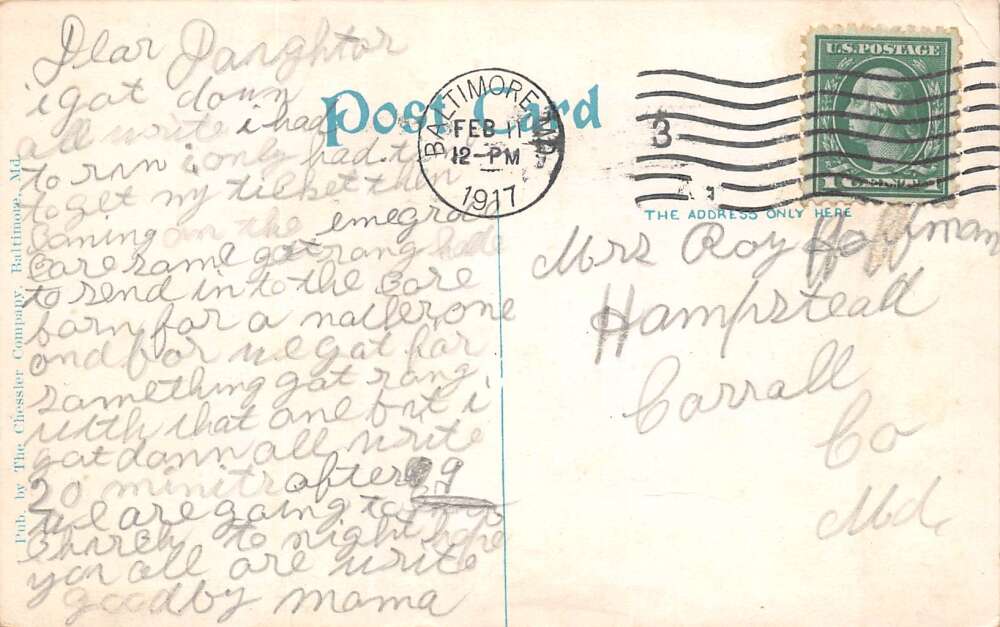 Dear Daughtor
i got down
all write i had
to run i only had tim
to get my ticket then
coming in the emegra
care some got rang hade
to send in to the care
barn for a nather one
and for we got far
something got rang
with that one but i
got down all write
20 minits after 9
we are going to
church to night hope
you all are write
goodby mama
Post Card
BALTIMORE, MD.
FEB 11
12-PM
1917
3
U.S. POSTAGE
THE ADDRESS ONLY HERE
Mrs Roy Hoffman
Hampstead
Carrall
Co
Md.
Pub. by The Chessler Company, Baltimore, Md.